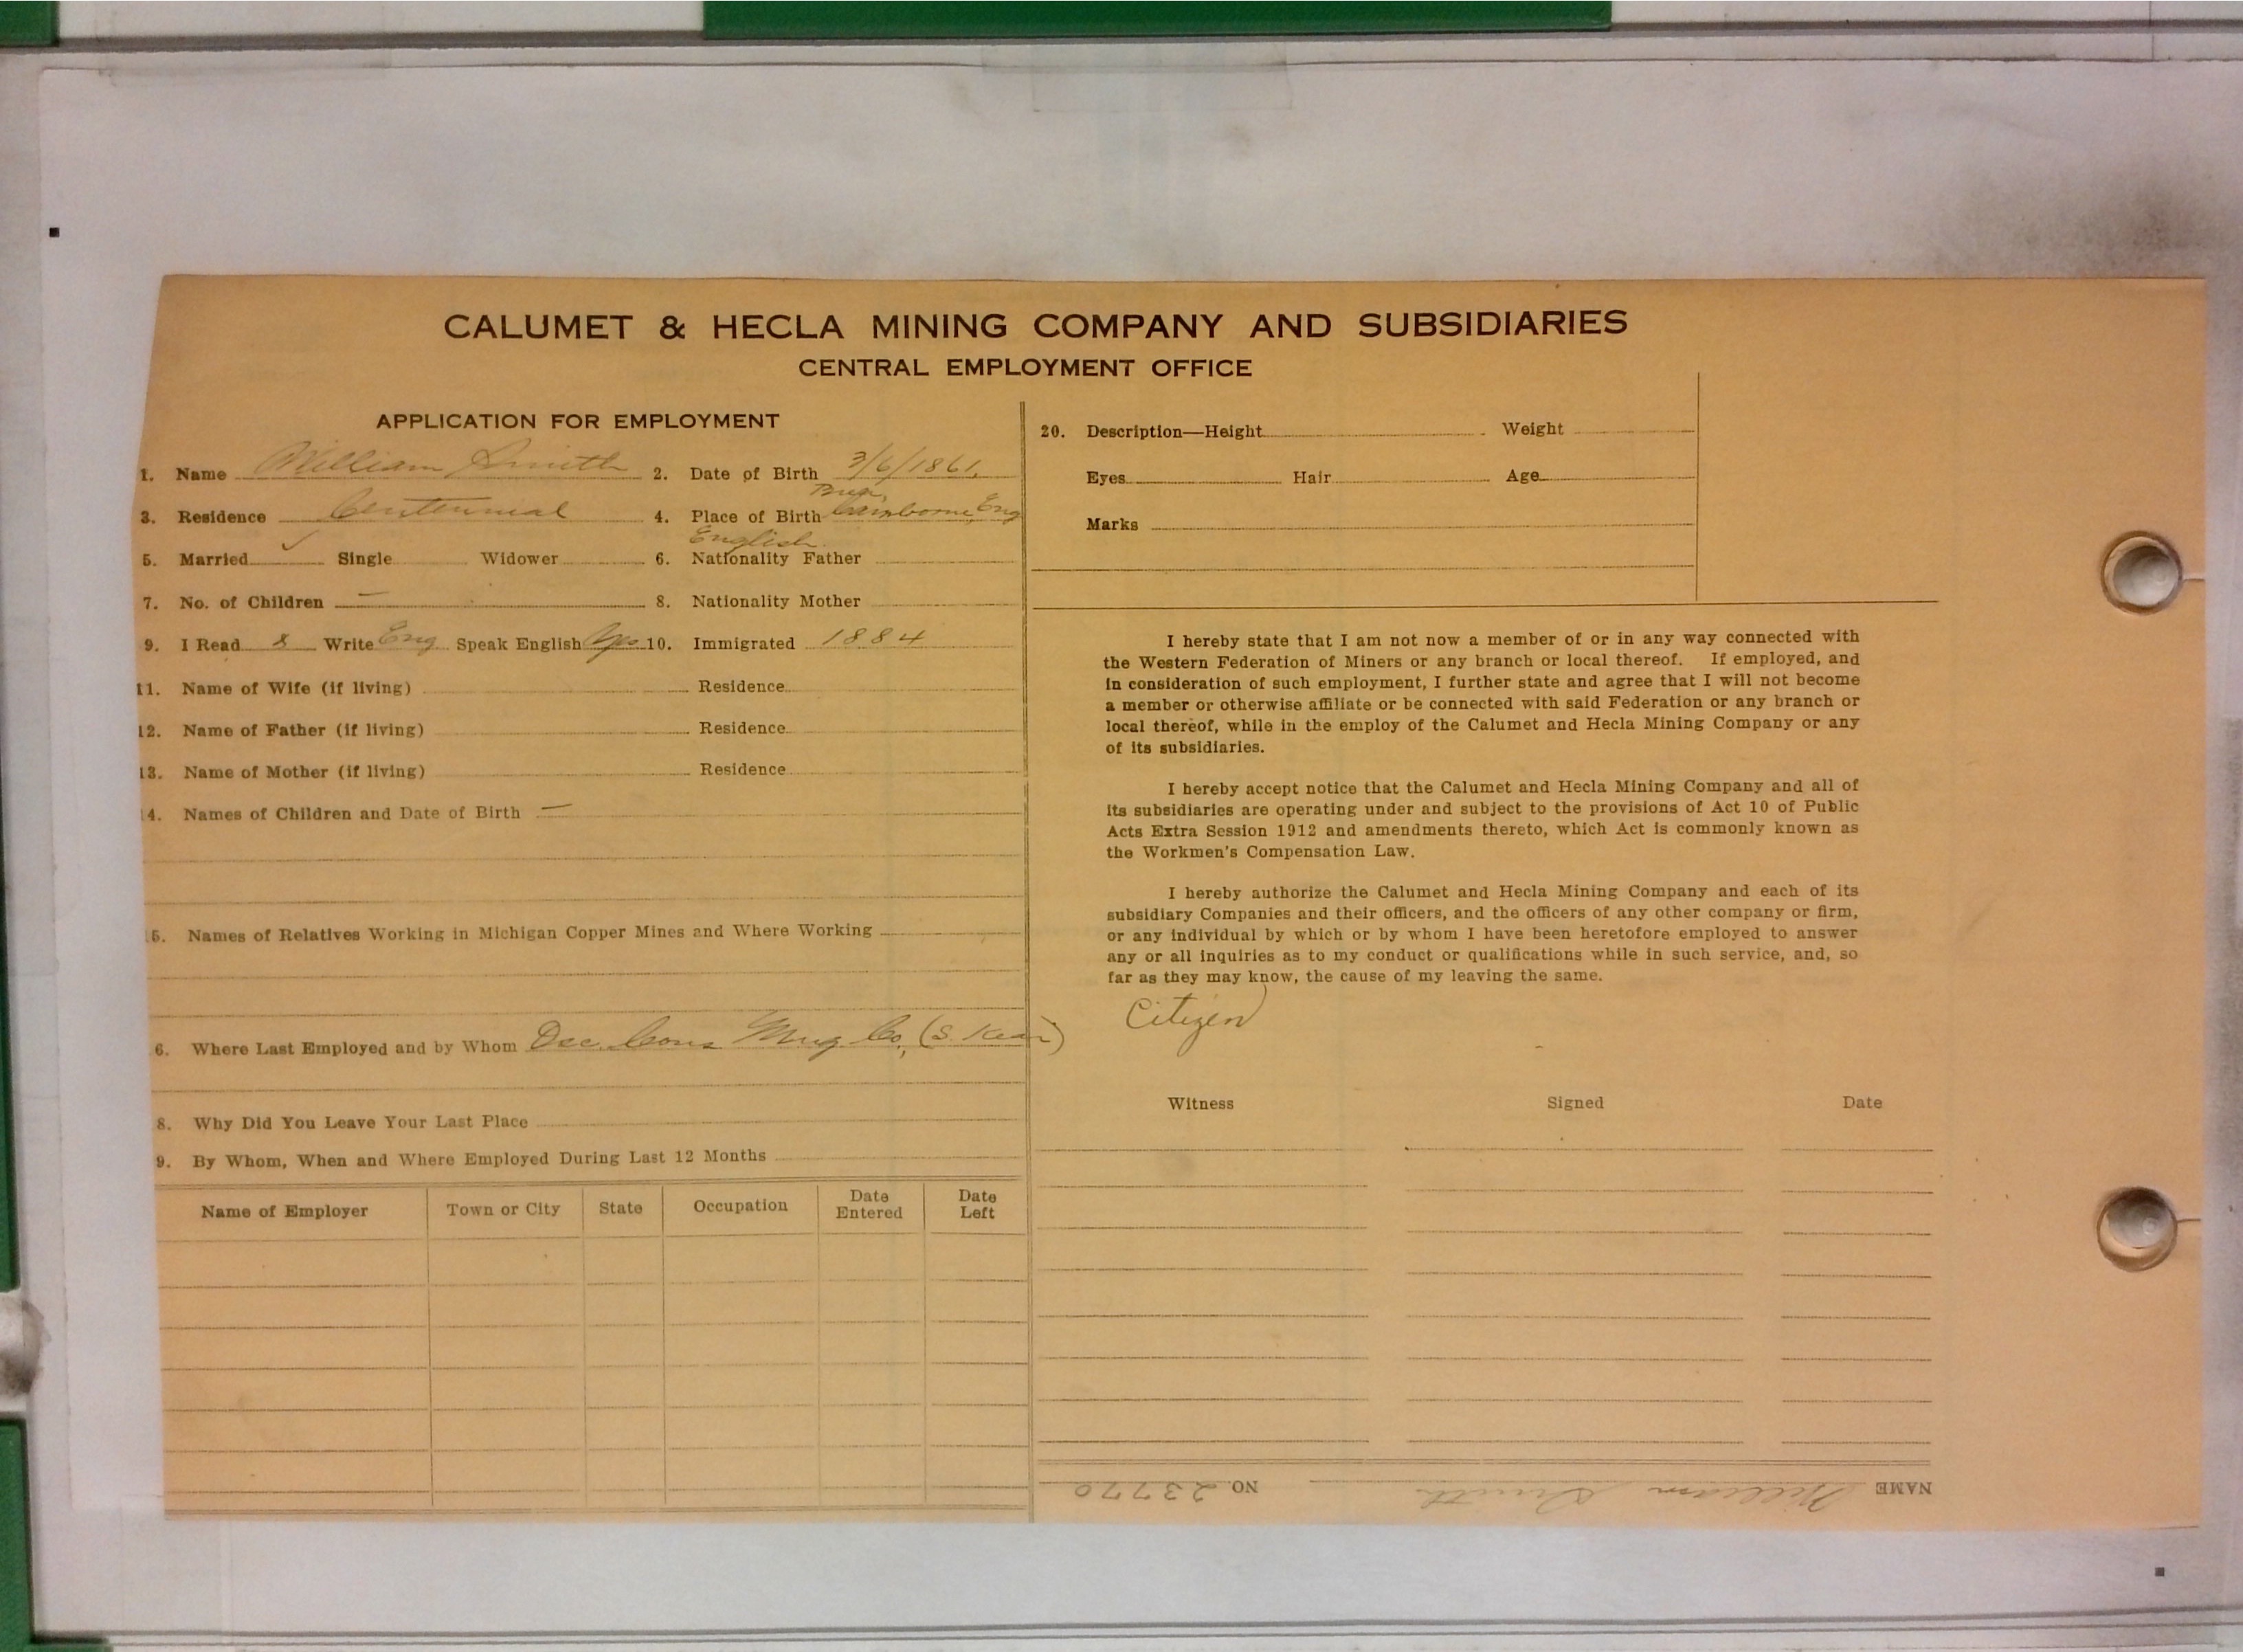 CALUMET & HECLA MINING COMPANY AND SUBSIDIARIES
CENTRAL EMPLOYMENT OFFICE
APPLICATION FOR EMPLOYMENT
1. Name William Smith 2. Date of Birth 3/6/1861
3. Residence Centennial 4. Place of Birth Camborne, Eng
English
5. Married ✓ Single Widower 6. Nationality Father
7. No. of Children — 8. Nationality Mother
9. I Read & Write Eng Speak English Yes 10. Immigrated 1884
11. Name of Wife (if living) Residence
12. Name of Father (if living) Residence
13. Name of Mother (if living) Residence
14. Names of Children and Date of Birth —
5. Names of Relatives Working in Michigan Copper Mines and Where Working
6. Where Last Employed and by Whom Osc. Cons Mng Co, (S. Kear)
8. Why Did You Leave Your Last Place
9. By Whom, When and Where Employed During Last 12 Months
Name of Employer Town or City State Occupation Date Entered Date Left
20. Description—Height Weight
Eyes Hair Age
Marks
I hereby state that I am not now a member of or in any way connected with
the Western Federation of Miners or any branch or local thereof. If employed, and
in consideration of such employment, I further state and agree that I will not become
a member or otherwise affiliate or be connected with said Federation or any branch or
local thereof, while in the employ of the Calumet and Hecla Mining Company or any
of its subsidiaries.
I hereby accept notice that the Calumet and Hecla Mining Company and all of
its subsidiaries are operating under and subject to the provisions of Act 10 of Public
Acts Extra Session 1912 and amendments thereto, which Act is commonly known as
the Workmen's Compensation Law.
I hereby authorize the Calumet and Hecla Mining Company and each of its
subsidiary Companies and their officers, and the officers of any other company or firm,
or any individual by which or by whom I have been heretofore employed to answer
any or all inquiries as to my conduct or qualifications while in such service, and, so
far as they may know, the cause of my leaving the same.
Citizen
Witness Signed Date
NAME William Smith NO. 23770